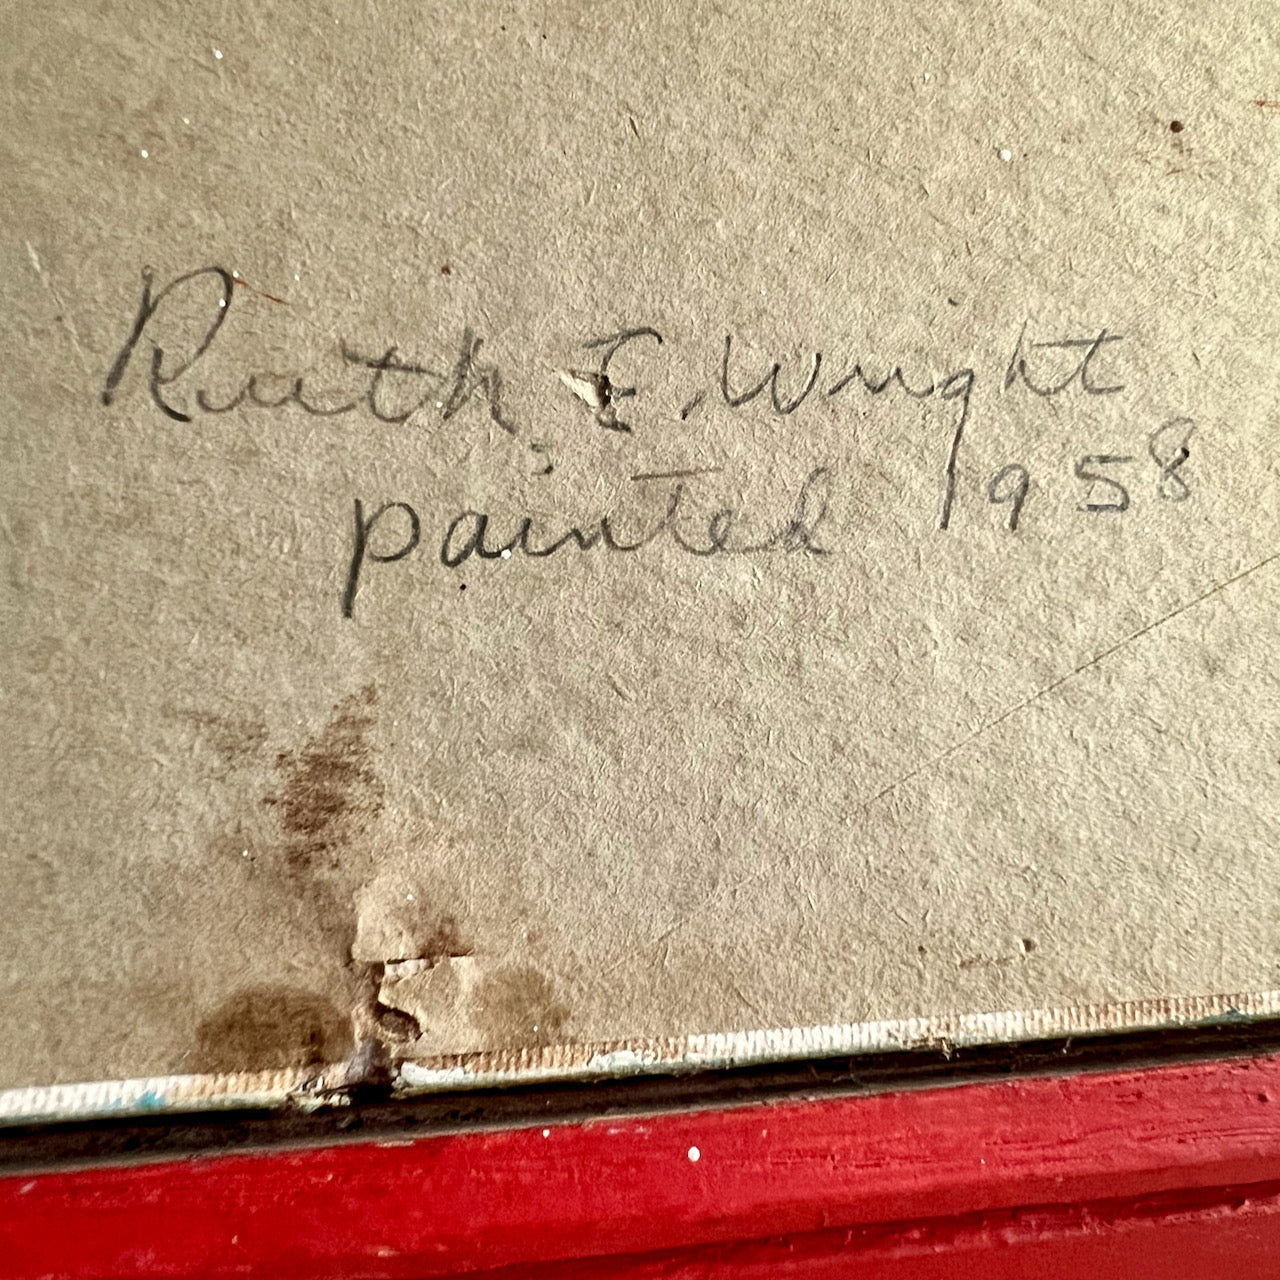 Ruth E. Wright
painted 1958